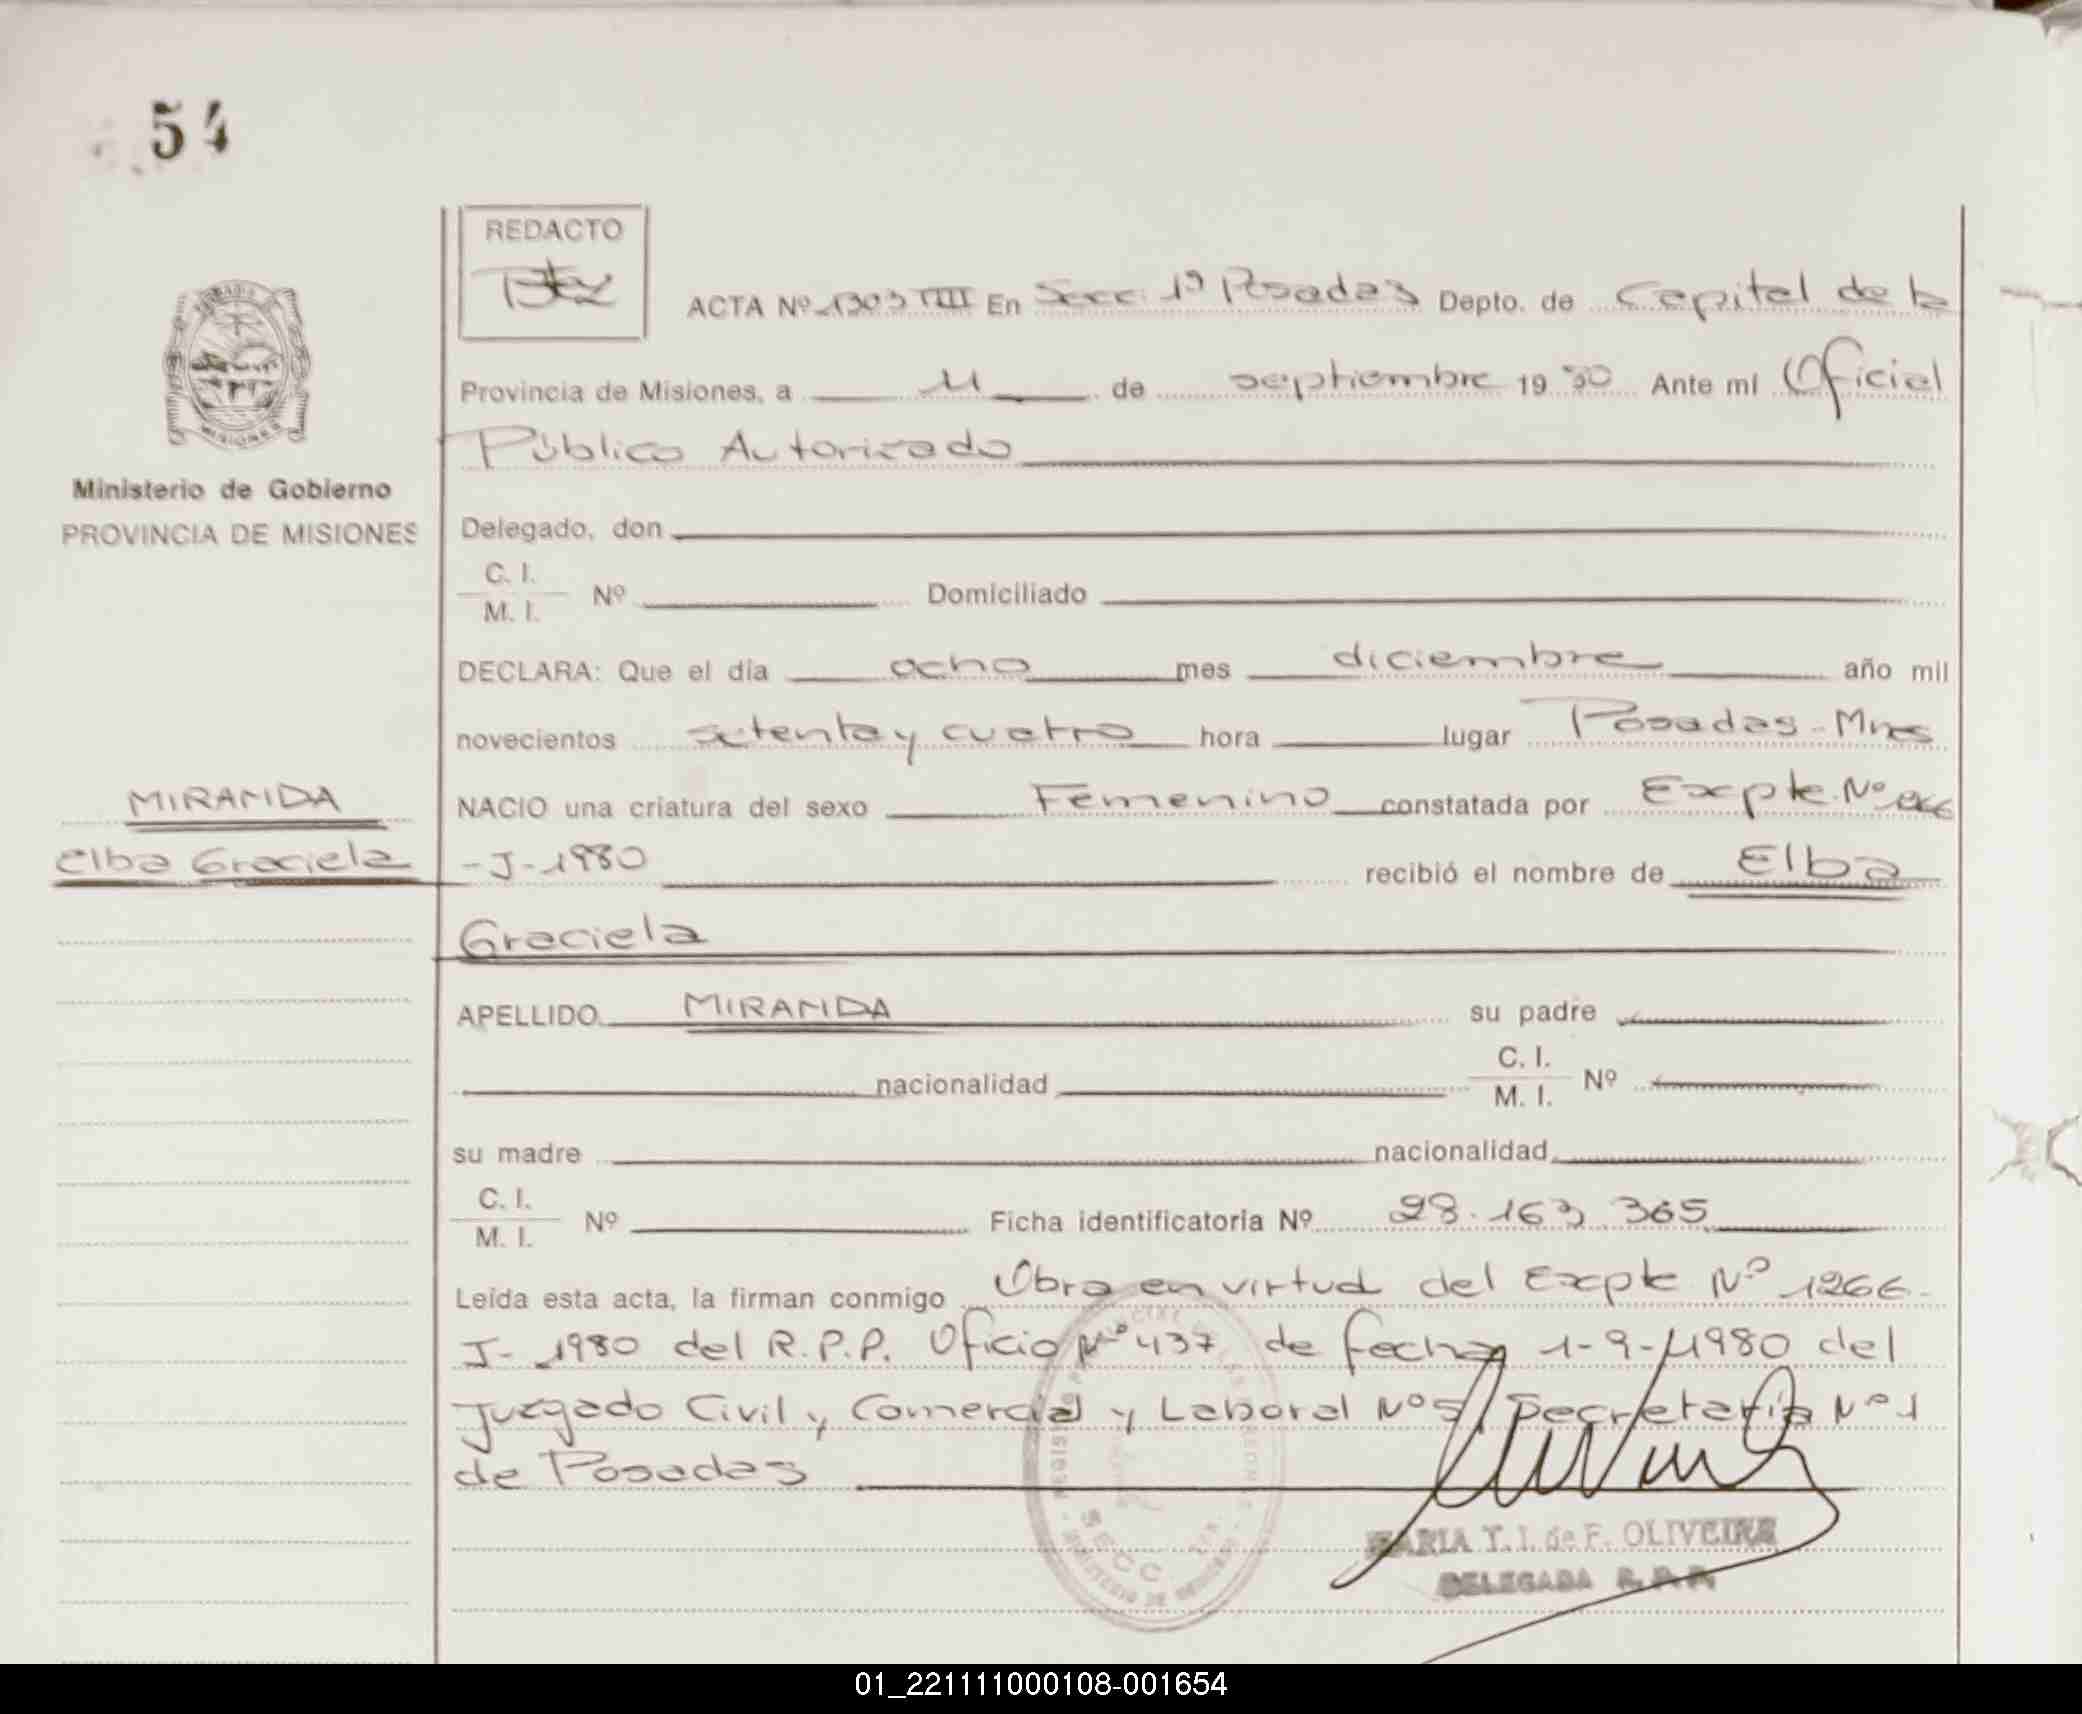 54
REDACTO
ACTA Nº 1303 TIII En Secc. 1ª Posadas Depto. de Capital de la
Provincia de Misiones, a 11 de septiembre 1980 Ante mí Oficial
Público Autorizado
Ministerio de Gobierno
PROVINCIA DE MISIONES
Delegado, don
C. I.
M. I. Nº Domiciliado
DECLARA: Que el día ocho mes diciembre año mil
novecientos setenta y cuatro hora lugar Posadas - Mnes
MIRANDA
NACIO una criatura del sexo Femenino constatada por Expte. Nº 1266
Elba Graciela
-J-1980 recibió el nombre de Elba
Graciela
APELLIDO MIRANDA su padre
nacionalidad C. I.
M. I. Nº
su madre nacionalidad
C. I.
M. I. Nº Ficha identificatoria Nº 28.163.365
Leída esta acta, la firman conmigo Obra en virtud del Expte Nº 1266-
J- 1980 del R.P.P. Oficio Nº 437 de fecha 1-9-1980 del
Juzgado Civil y Comercial y Laboral Nº 5, Secretaría Nº 1
de Posadas
MARIA T. I. de F. OLIVEIRA
DELEGADA R. P. P.
SECC
01_221111000108-001654